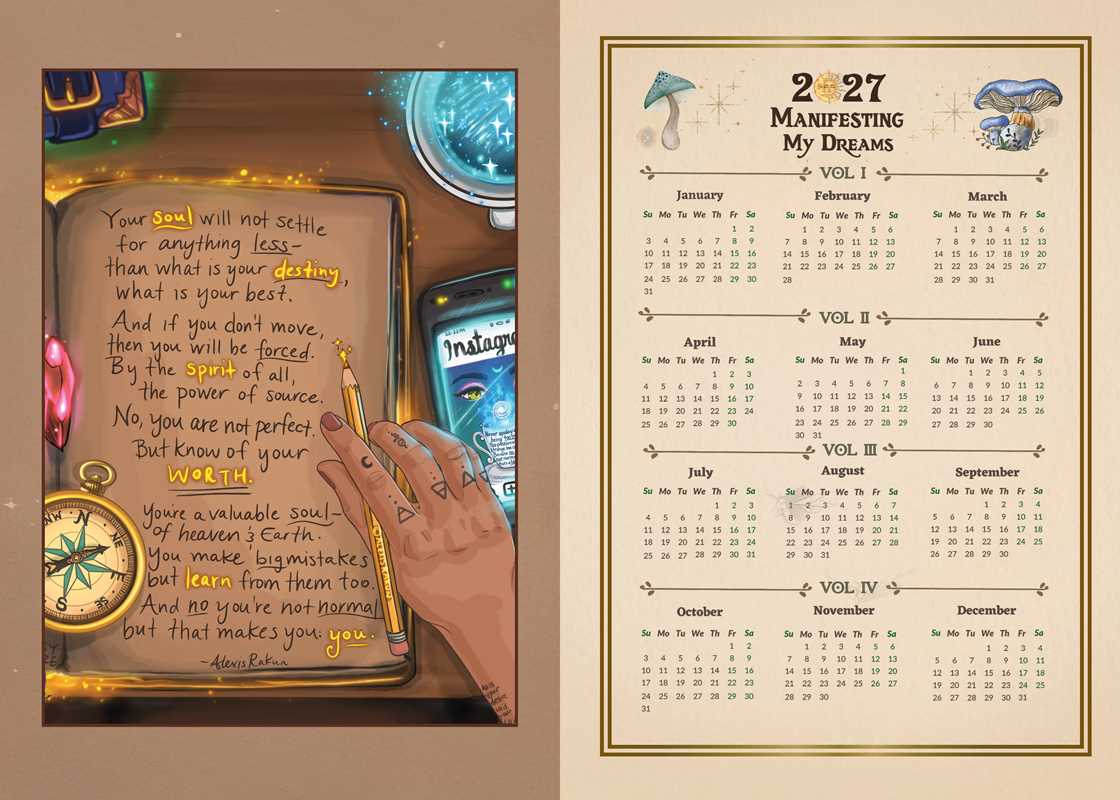 Your soul will not settle
for anything less-
than what is your destiny,
what is your best.
And if you don't move,
then you will be forced.
By the spirit of all,
the power of source.
No, you are not perfect.
But know of your
WORTH.
You're a valuable soul-
of heaven & Earth.
You make big mistakes
but learn from them too.
And no you're not normal
but that makes you: you.
~Alexis Rakun
Instagra
NW
N
NE
SE
S
2027
MANIFESTING
MY DREAMS
VOL I
January February March
Su Mo Tu We Th Fr Sa Su Mo Tu We Th Fr Sa Su Mo Tu We Th Fr Sa
1 2 1 2 3 4 5 6 1 2 3 4 5 6
3 4 5 6 7 8 9 7 8 9 10 11 12 13 7 8 9 10 11 12 13
10 11 12 13 14 15 16 14 15 16 17 18 19 20 14 15 16 17 18 19 20
17 18 19 20 21 22 23 21 22 23 24 25 26 27 21 22 23 24 25 26 27
24 25 26 27 28 29 30 28 28 29 30 31
31
VOL II
April May June
Su Mo Tu We Th Fr Sa Su Mo Tu We Th Fr Sa Su Mo Tu We Th Fr Sa
1 2 3 1 1 2 3 4 5
4 5 6 7 8 9 10 2 3 4 5 6 7 8 6 7 8 9 10 11 12
11 12 13 14 15 16 17 9 10 11 12 13 14 15 13 14 15 16 17 18 19
18 19 20 21 22 23 24 16 17 18 19 20 21 22 20 21 22 23 24 25 26
25 26 27 28 29 30 23 24 25 26 27 28 29 27 28 29 30
30 31
VOL III
July August September
Su Mo Tu We Th Fr Sa Su Mo Tu We Th Fr Sa Su Mo Tu We Th Fr Sa
1 2 3 1 2 3 4 5 6 7 1 2 3 4
4 5 6 7 8 9 10 8 9 10 11 12 13 14 5 6 7 8 9 10 11
11 12 13 14 15 16 17 15 16 17 18 19 20 21 12 13 14 15 16 17 18
18 19 20 21 22 23 24 22 23 24 25 26 27 28 19 20 21 22 23 24 25
25 26 27 28 29 30 31 29 30 31 26 27 28 29 30
VOL IV
October November December
Su Mo Tu We Th Fr Sa Su Mo Tu We Th Fr Sa Su Mo Tu We Th Fr Sa
1 2 1 2 3 4 5 6 1 2 3 4
3 4 5 6 7 8 9 7 8 9 10 11 12 13 5 6 7 8 9 10 11
10 11 12 13 14 15 16 14 15 16 17 18 19 20 12 13 14 15 16 17 18
17 18 19 20 21 22 23 21 22 23 24 25 26 27 19 20 21 22 23 24 25
24 25 26 27 28 29 30 28 29 30 26 27 28 29 30 31
31